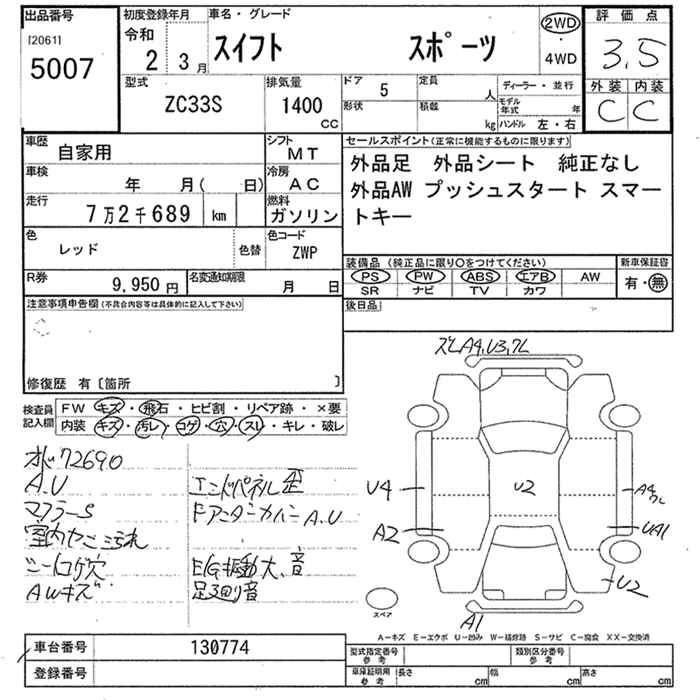 出品番号 初度登録年月 車名・グレード 評価点
[2061]
5007
令和 2 3月 スイフト スポーツ 2WD 4WD 3.5
型式 ZC33S 排気量 1400 cc ドア 5 定員 人 ディーラー・並行 外装 内装
形状 積載 kg モデル年式 年 ハンドル 左・右 C C
車歴 自家用 シフト MT セールスポイント(正常に機能するものに限ります)
車検 年 月( 日) 冷房 AC 外品足 外品シート 純正なし
走行 7万2千689 km 燃料 ガソリン 外品AW プッシュスタート スマー
トキー
色 レッド 色替 色コード ZWP
装備品 (純正品に限り○をつけてください) 新車保証書
R券 9,950円 名変通知期限 月 日 PS PW ABS エアB AW 有・無
SR ナビ TV カワ
注意事項申告欄(不具合内容等は具体的に記入して下さい) 後日品
修復歴 有〔箇所 〕
検査員記入欄 FW キズ・飛石・ヒビ割・リペア跡・×要
内装 キズ・汚レ・コゲ・穴・スレ・キレ・破レ
72690
A.U エンドパネル歪
マフラーS A.U
室内ヤニ汚れ
シートコゲ穴 E/G振動大、音
AWキズ 足回り音
A4,U3,
U4
A2
U2
A4
UA1
U2
A1
スペア
A－キズ E－エクボ U－凹み W－補修跡 S－サビ C－腐食 XX－交換済
車台番号 130774 型式指定番号 参考 類別区分番号 参考
登録番号 車庫証明用 参考 長さ cm 幅 cm 高さ cm